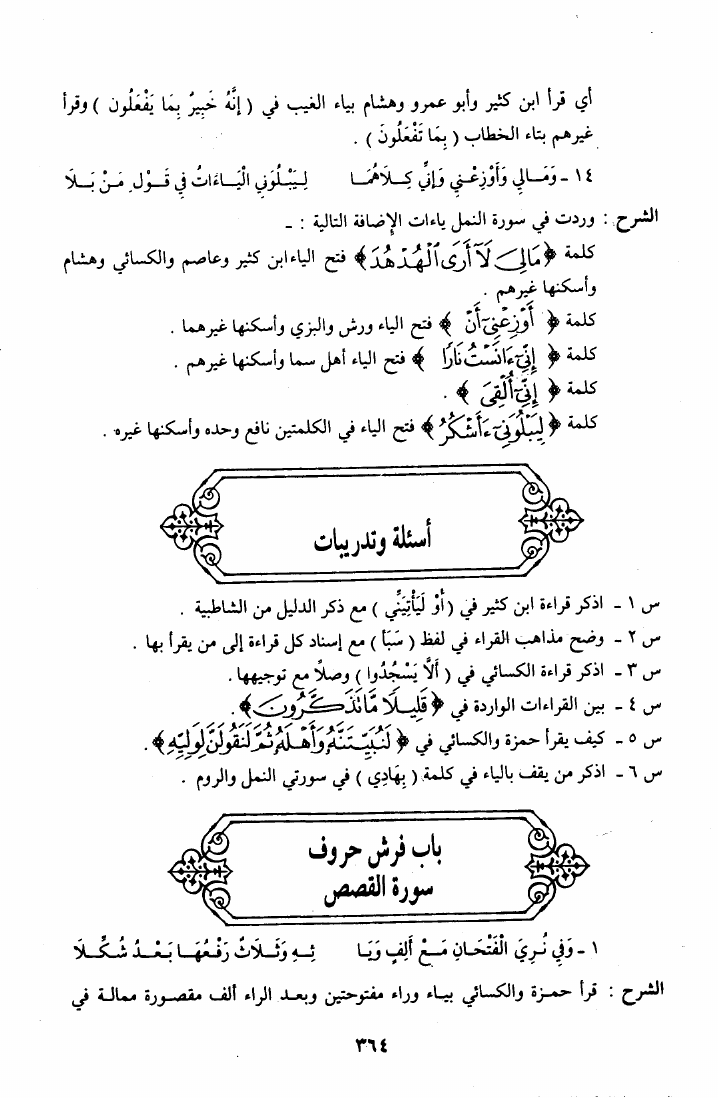 أي قرأ ابن كثير وأبو عمرو وهشام بياء الغيب في ( إِنَّهُ خَبِيرٌ بِمَا يَفْعَلُون ) وقرأ
غيرهم بتاء الخطاب ( بِمَا تَفْعَلُونَ ) .
١٤ - وَمَـالِي وَأَوْزِعْـنِي وَإِنِّي كِـلَاهُمَـا لِـيَبْلُوَنِي الْيَـاءَاتُ فِي قَـوْلِ مَـنْ بَـلَا
الشرح : وردت في سورة النمل ياءات الإضافة التالية : -
كلمة ﴿ مَالِيَ لَآ أَرَى ٱلْهُدْهُدَ ﴾ فتح الياء ابن كثير وعاصم والكسائي وهشام
وأسكنها غيرهم .
كلمة ﴿ أَوْزِعْنِىٓ أَنْ ﴾ فتح الياء ورش والبزي وأسكنها غيرهما .
كلمة ﴿ إِنِّىٓ ءَانَسْتُ نَارًا ﴾ فتح الياء أهل سما وأسكنها غيرهم .
كلمة ﴿ إِنِّىٓ أُلْقِىَ ﴾ .
كلمة ﴿ لِيَبْلُوَنِىٓ ءَأَشْكُرُ ﴾ فتح الياء في الكلمتين نافع وحده وأسكنها غيره .
أسئلة وتدريبات
س ١ - اذكر قراءة ابن كثير في ( أَوْ لَيَأْتِيَنِّي ) مع ذكر الدليل من الشاطبية .
س ٢ - وضح مذاهب القراء في لفظ ( سَبَأ ) مع إسناد كل قراءة إلى من يقرأ بها .
س ٣ - اذكر قراءة الكسائي في ( أَلَّا يَسْجُدُوا ) وصلًا مع توجيهها .
س ٤ - بين القراءات الواردة في ﴿ قَلِيـلًا مَّا تَذَكَّرُونَ ﴾ .
س ٥ - كيف يقرأ حمزة والكسائي في ﴿ لَنُبَيِّتَنَّهُۥ وَأَهْلَهُۥ ثُمَّ لَنَقُولَنَّ لِوَلِيِّهِۦ ﴾ .
س ٦ - اذكر من يقف بالياء في كلمة ( بِهَادِي ) في سورتي النمل والروم .
باب فرش حروف
سورة القصص
١ - وَفِي نُـرِيَ الْفَتْحَـانِ مَـعْ أَلِفٍ وَيَـا ئِـهِ وَثَـلَاثٌ رَفْعُهَـا بَعْـدُ شُكِّـلَا
الشرح : قرأ حمـزة والكسائي بيـاء وراء مفتوحتين وبعـد الراء ألف مقصـورة ممالـة في
٣٦٤